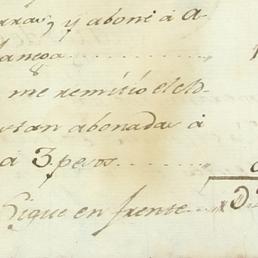 y aboné á A
lanza
me remitió el d
stan abonadas á
á 3. pesos
Sigue en frente